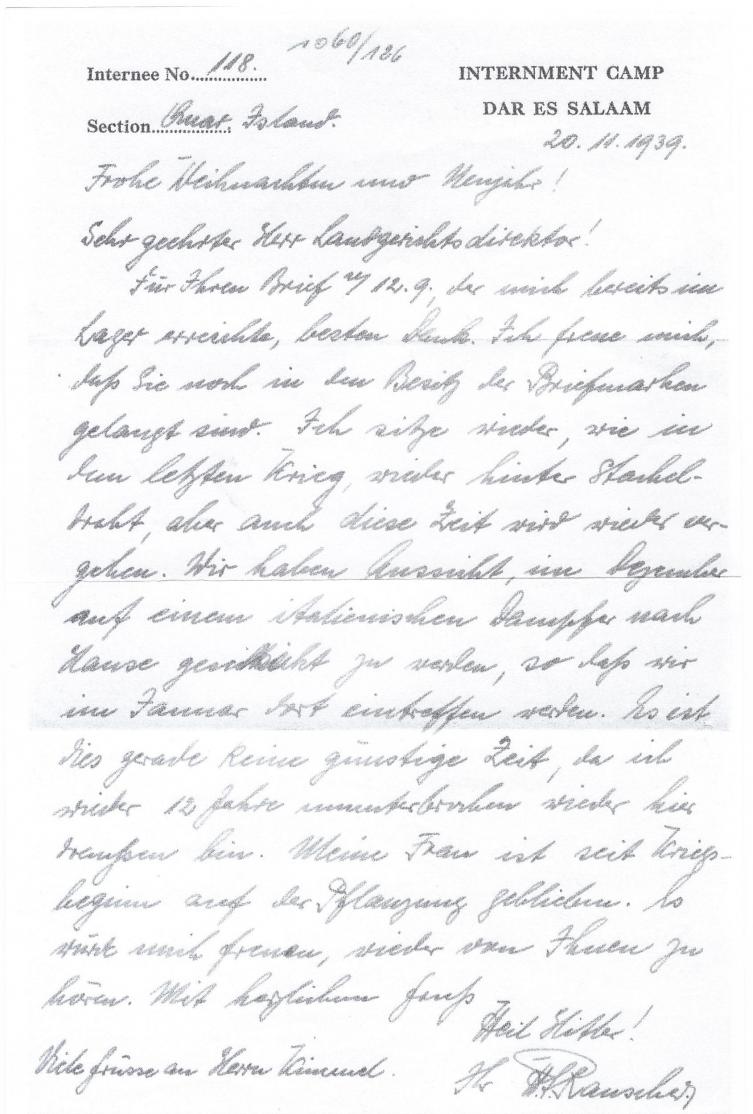 1060/126
Internee No. 118. INTERNMENT CAMP
DAR ES SALAAM
Section Island.
20.11.1939.
Frohe Weihnachten und Neujahr!
Sehr geehrter Herr Landgerichtsdirektor!
Für Ihren Brief v/ 12.9., der mich bereits im
Lager erreichte, besten Dank. Ich freue mich,
daß Sie noch in den Besitz der Briefmarken
gelangt sind. Ich sitze wieder, wie in
dem letzten Krieg, wieder hinter Stachel-
draht, aber auch diese Zeit wird wieder ver-
gehen. Wir haben Aussicht, im Dezember
auf einem italienischen Dampfer nach
Hause geschickt zu werden, so daß wir
im Januar dort eintreffen werden. Es ist
dies gerade keine günstige Zeit, da ich
wieder 12 Jahre ununterbrochen wieder hier
draußen bin. Meine Frau ist seit Kriegs-
beginn auf der Pflanzung geblieben. Es
würde mich freuen, wieder von Ihnen zu
hören. Mit herzlichem Gruß
Heil Hitler!
Viele Grüsse an Herrn Kimmel.
Ihr Rauscher